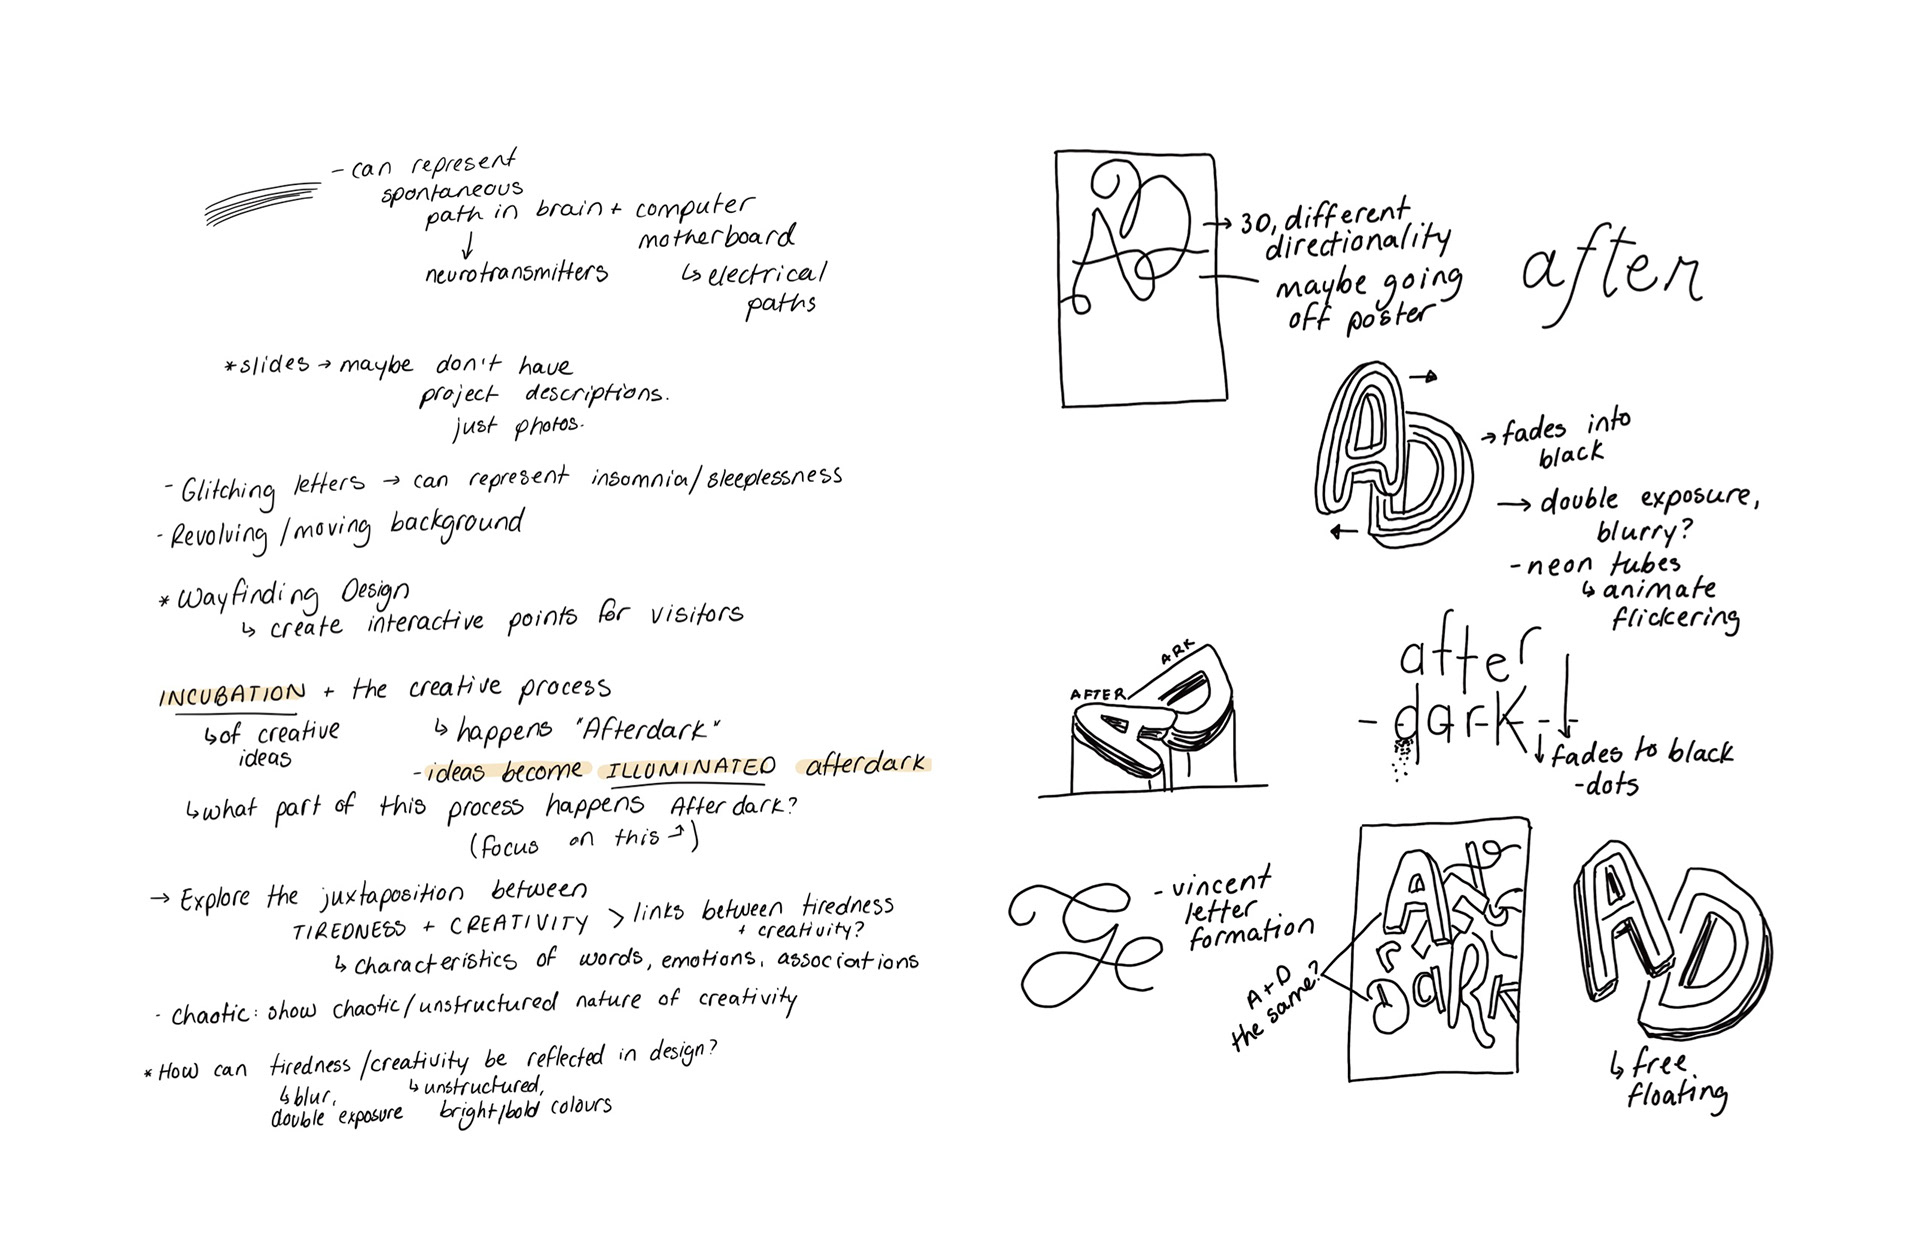 - can represent
spontaneous
path in brain + computer
motherboard
↓
neurotransmitters
↳ electrical
paths
* slides → maybe don't have
project descriptions.
just photos.
- Glitching letters → can represent insomnia/sleeplessness
- Revolving/moving background
* Wayfinding Design
↳ create interactive points for visitors
INCUBATION + the creative process
↳ of creative
ideas
↳ happens "Afterdark"
- ideas become ILLUMINATED afterdark
↳ what part of this process happens After dark?
(focus on this ⤴)
→ Explore the juxtaposition between
TIREDNESS + CREATIVITY > links between tiredness
+ creativity?
↳ characteristics of words, emotions, associations
- Chaotic: show chaotic/unstructured nature of creativity
* How can tiredness/creativity be reflected in design?
↳ blur,
double exposure
↳ unstructured,
bright/bold colours
AD
→ 3D, different
directionality
maybe going
off poster
after
AD
→ fades into
black
→ double exposure,
blurry?
- neon tubes
↳ animate
flickering
AFTER
ARK
AD
after
- dark -
↓ fades to black
- dots
- vincent
letter
formation
A + D
the same?
A
r
Dark
AD
↳ free
floating